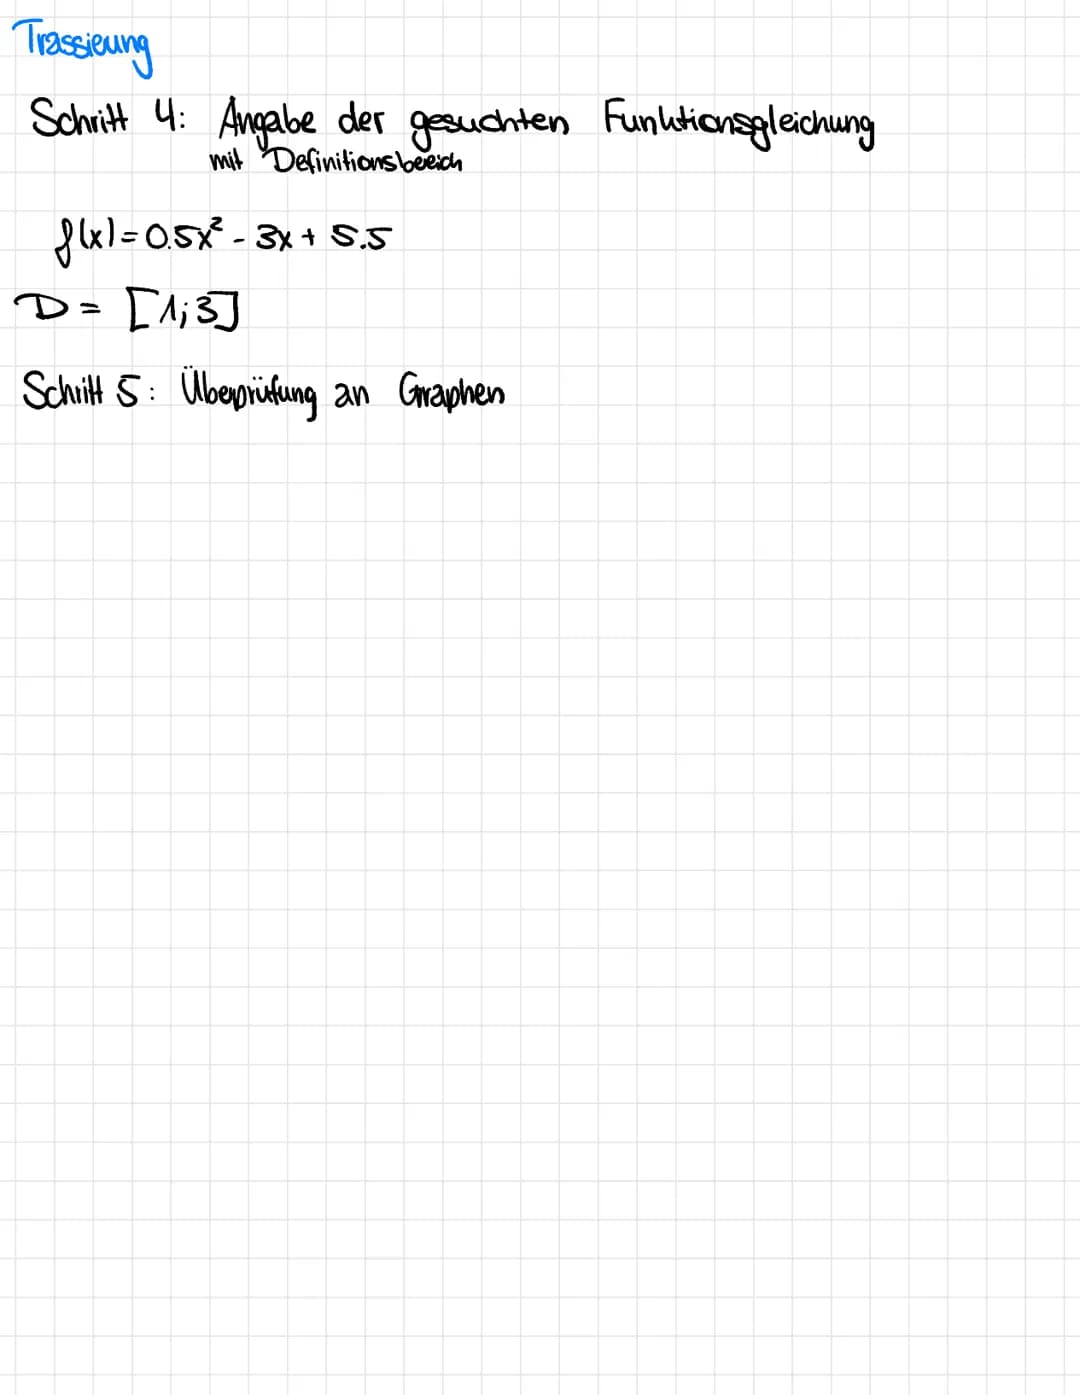 Trassierung
Schritt 4: Angabe der gesuchten Funktionsgleichung
mit Definitionsbereich
f(x)=0.5x² - 3x + 5.5
D = [1;3]
Schritt 5: Überprüfung an Graphen